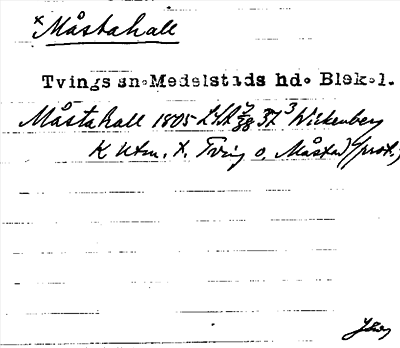 ×Måstahall
Tvings sn. Medelstads hd. Blek.l.
Måstahall 1805 37 3 Wickenberg
K utm. t. Tving o. Måstad (prot.)